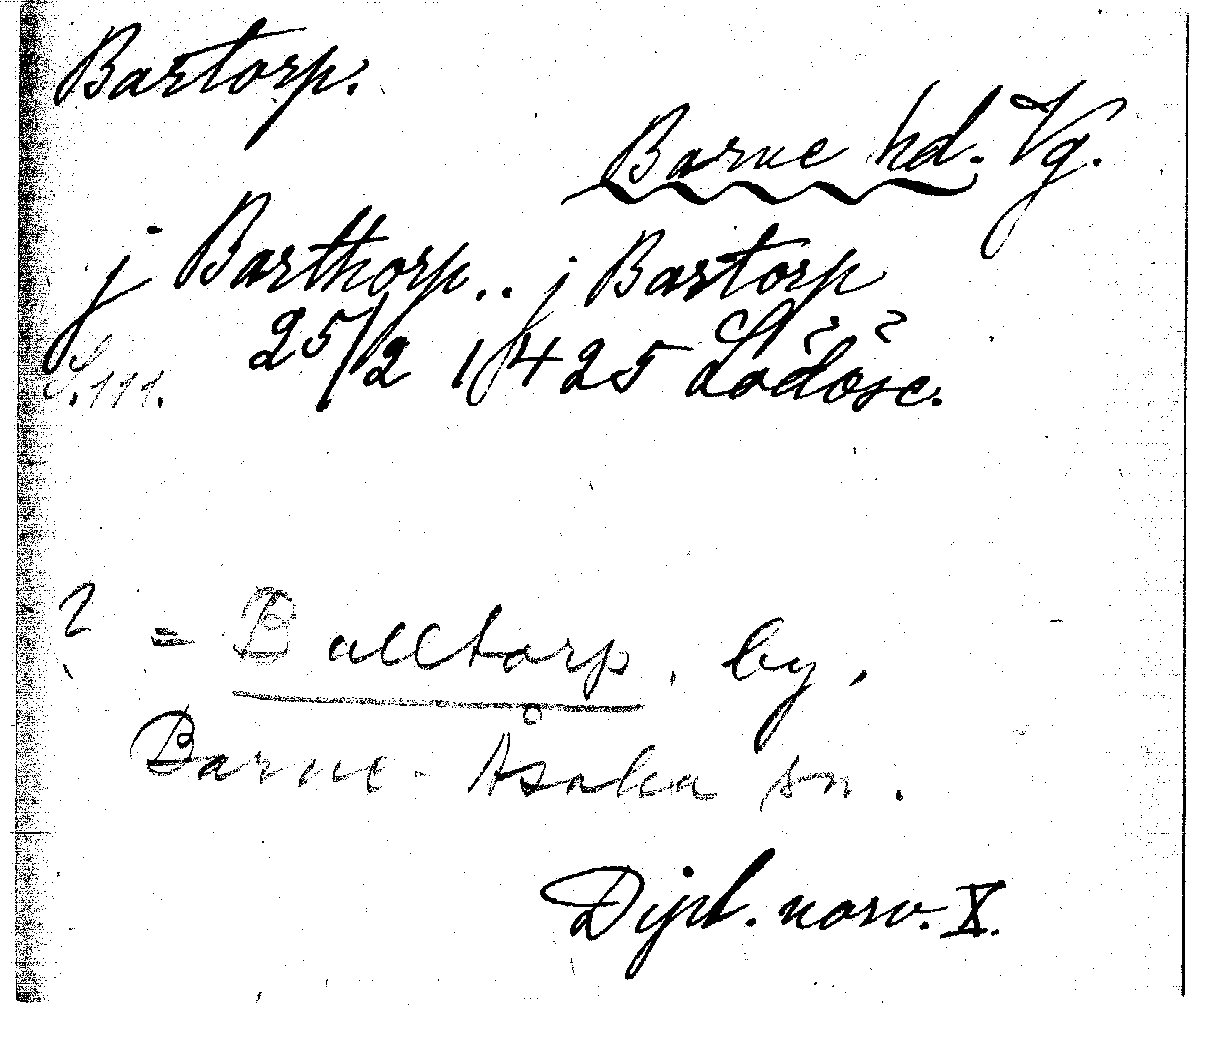 Bartorp.
Barne hd. Vg.
j Barthorp.. j Bartorp
S. 111. 25/2 1425 Lödöse.
? = Balltorp, by,
Barne-Åsaka sn.
Dipl. norv. X.